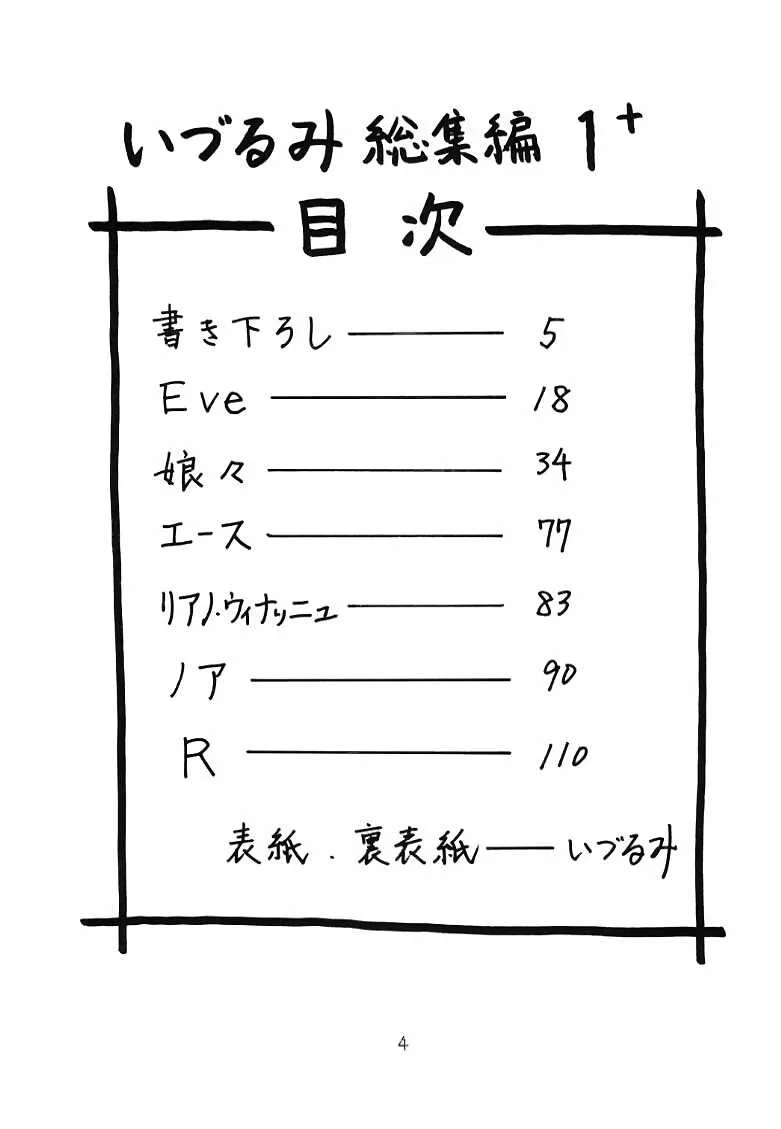 いづるみ 総集編 1+
目次
書き下ろし ── 5
Eve ── 18
娘々 ── 34
エース ── 77
リアノ・ウィナッニュ ── 83
ノア ── 90
R ── 110
表紙．裏表紙 ── いづるみ
4